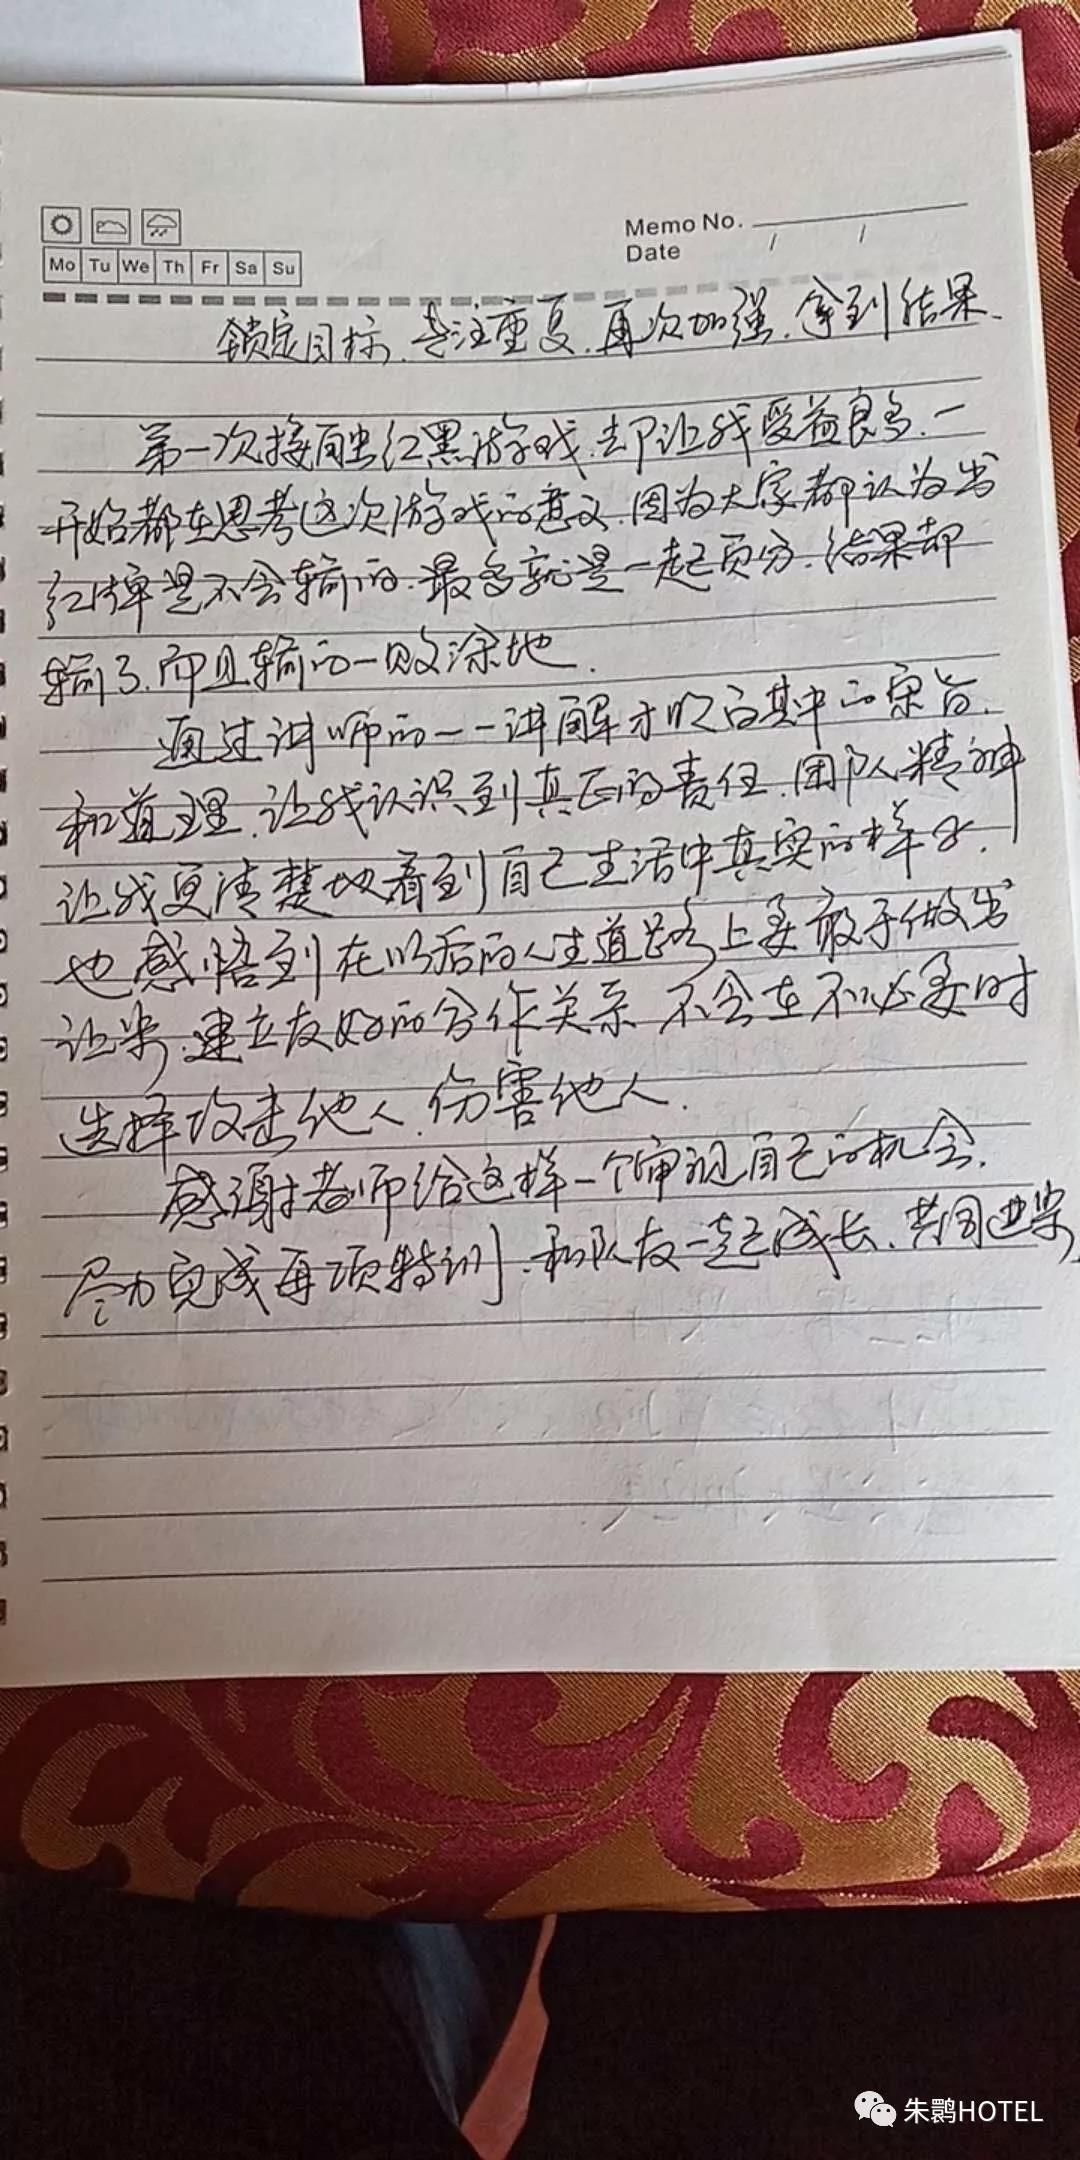 Memo No.
Mo Tu We Th Fr Sa Su
Date / /
锁定目标、专注重复、再次加强、拿到结果、
第一次接触红黑游戏、却让我受益良多、一
开始都在思考这次游戏的意义、因为大家都认为出
红牌是不会输的、最多就是一起负分、结果却
输了、而且输的一败涂地、
通过讲师的一一讲解才明白其中的宗旨、
和道理、让我认识到真正的责任、团队精神
让我更清楚地看到自己生活中真实的样子、
也感悟到在以后的人生道路上要敢于做出
让步、建立友好的合作关系 不会在不必要时
选择攻击他人、伤害他人、
感谢老师给这样一个审视自己的机会、
尽力完成每项特训、和队友一起成长、共同进步、
朱鹮HOTEL